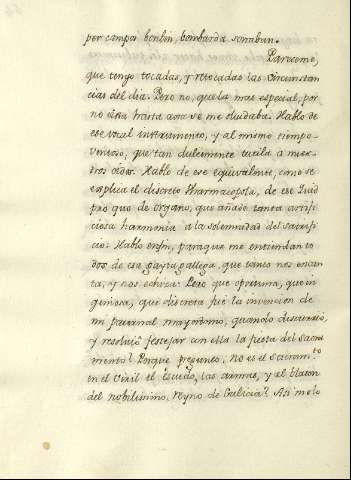 por campos bonbon, bombarda sonaban.
Pareceme,
que tengo tocadas, y retocadas las circunstan
cias del dia. Pero no, que la mas especial, por
no oirla hasta aora se me olvidaba. Hablo de
ese vocal instrumento, y al mismo tiempo
ventoso, que tan dulcemente turila a nues-
tros oidos. Hablo de ese equivalente, como se
explica el discreto Pharmacopola, de ese Quid
pro quo de organo, que añade tanta artifi
ciosa harmonia a la solemnidad del sacrifi
cio: Hablo enfin, paraque me entiendan to
dos de esa gayta gallega, que tanto nos encan
ta, y nos echiza: Pero que oportuna, que in
geniosa, que discreta fue la invencion de
mi paternal mayordomo, quando discurrió,
y resolvió festejar con ella la fiesta del Sacra
mento? Porque pregunto, no es el Sacramto
en el Viril el Escudo, las armas, y el blason
del nobilisimo Reyno de Galicia? Asi me lo